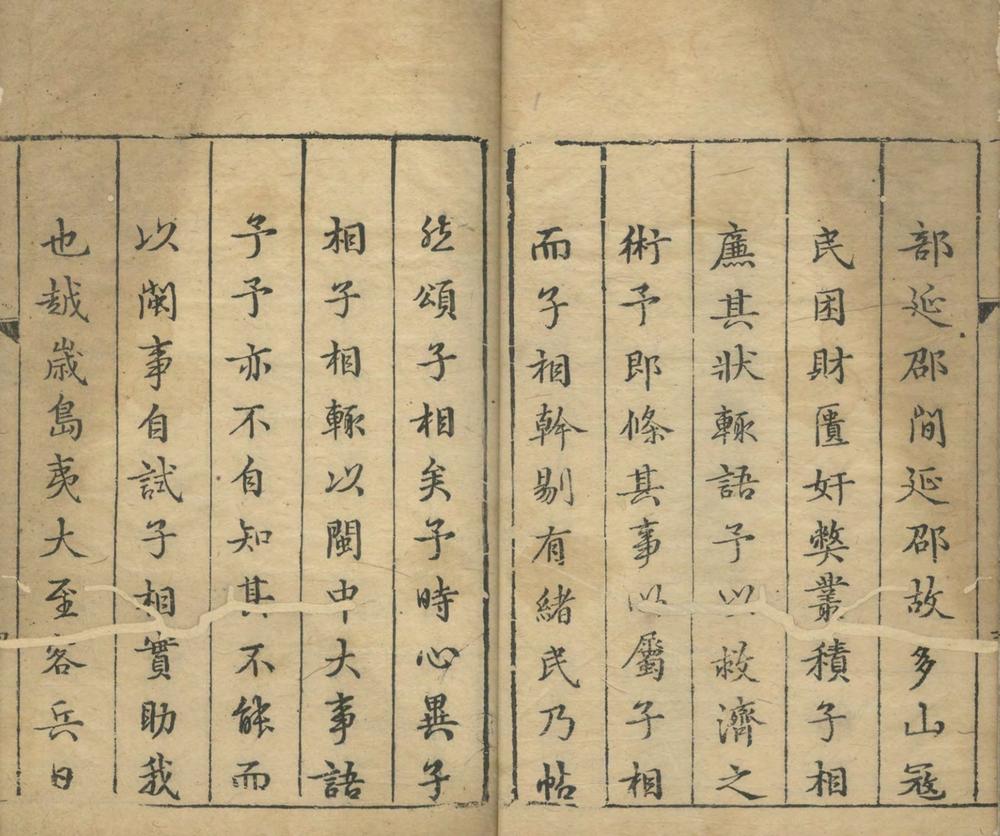 部延邵間延邵故多山寇
民困財匱奸獘叢積子相
廉其狀輒語予以救濟之
術予即條其事以屬子相
而子相幹剔有緒民乃帖
然頌子相矣予時心異子
相子相輒以閩中大事語
予予亦不自知其不能而
以閩事自試子相實助我
也越歲島夷大至客兵日